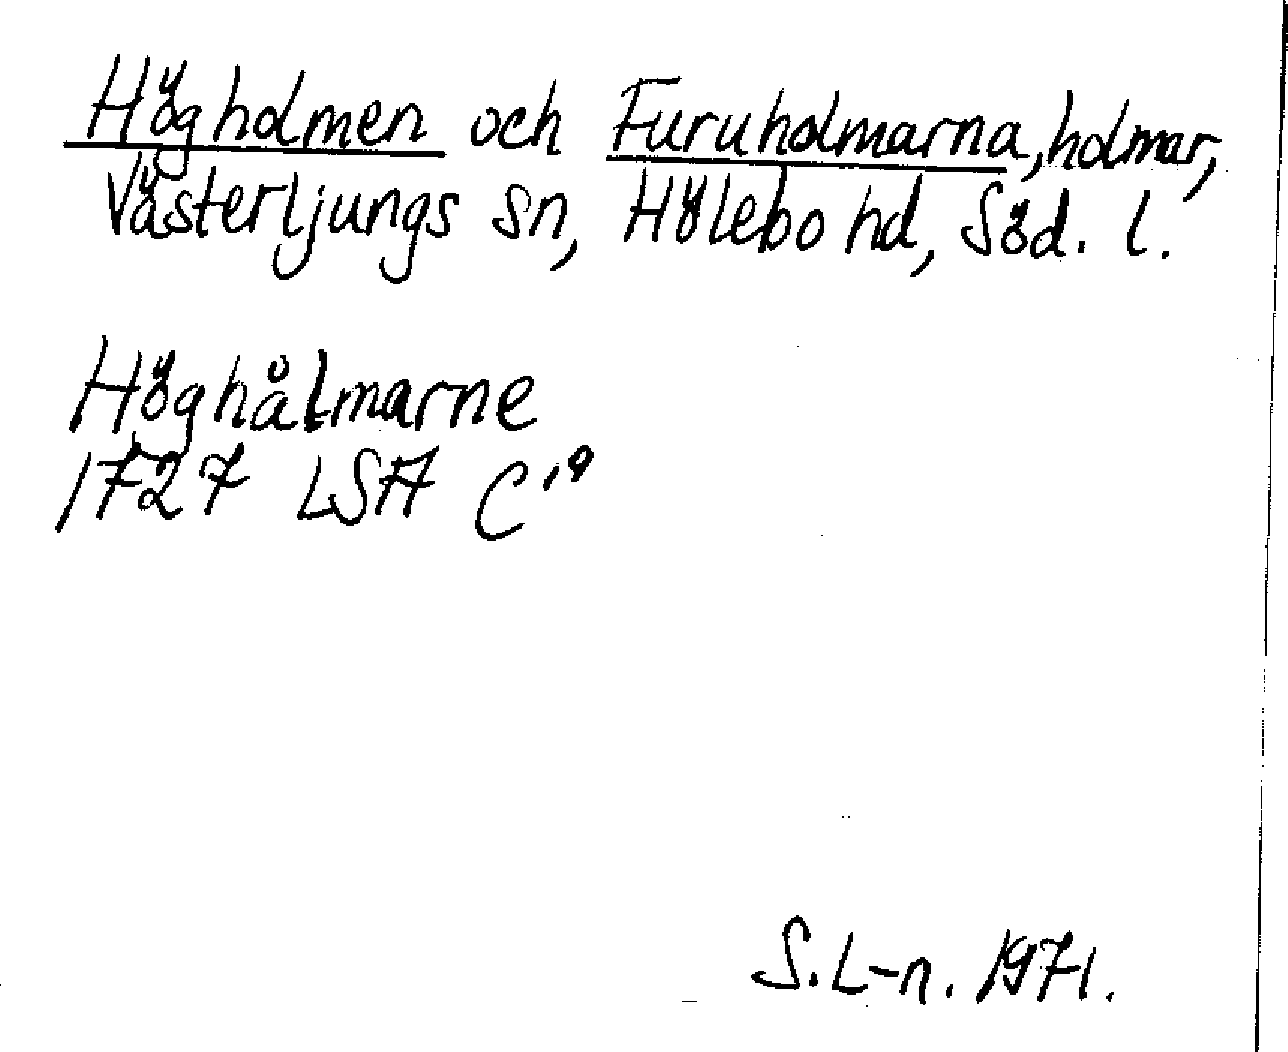 Högholmen och Furuholmarna, holmar,
Västerljungs sn, Hölebo hd, Söd. l.
Höghålmarne
1727 LSA C¹⁹
S. L-n. 1971.